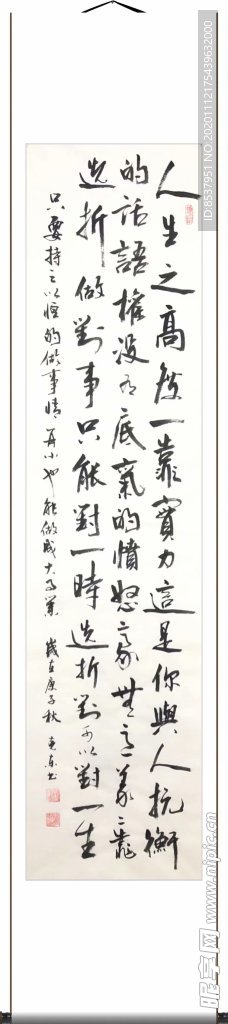 人生之高度一靠實力這是你與人抗衡
的話語權沒有底氣的憤怒毫無意义二靠
选折做對事只能對一時选折對可以對一生
只要持之以恒的做事情再小也能做成大事業
歲在庚子秋 東书
ID:8537951 NO:20201112175439632000
昵享网 www.nipic.cn